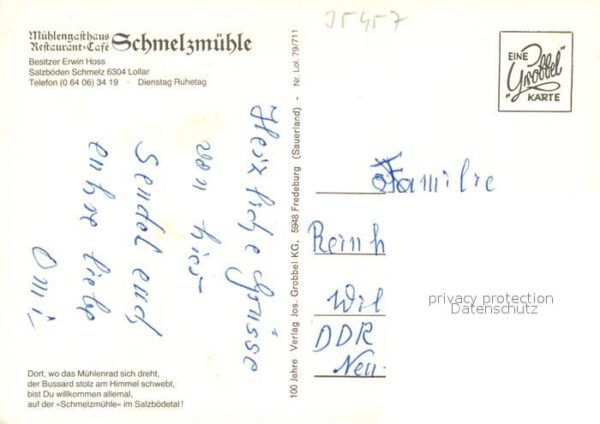 35457
Mühlengasthaus
Restaurant-Café Schmelzmühle
Besitzer Erwin Hoss
Salzböden Schmelz 6304 Lollar
Telefon (0 64 06) 34 19 · Dienstag Ruhetag
EINE
„Grobbel"
KARTE
Herzliche Grüsse
von hier
sendet euch
euhre liebe
Omi
100 Jahre Verlag Jos. Grobbel KG, 5948 Fredeburg (Sauerland) - Nr. Lol. 79/711
Familie
Reinh
Wil
DDR
Neu
privacy protection
Datenschutz
Dort, wo das Mühlenrad sich dreht,
der Bussard stolz am Himmel schwebt,
bist Du willkommen allemal,
auf der »Schmelzmühle« im Salzbödetal!